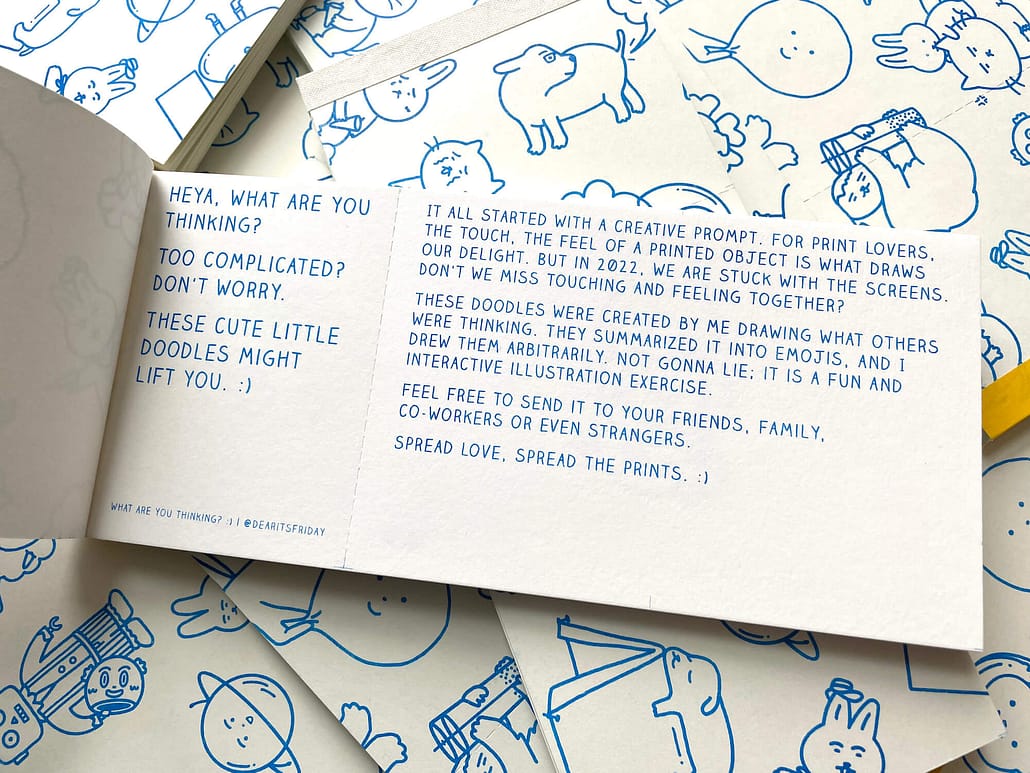 HEYA, WHAT ARE YOU
THINKING?
TOO COMPLICATED?
DON'T WORRY.
THESE CUTE LITTLE
DOODLES MIGHT
LIFT YOU. :)
WHAT ARE YOU THINKING? :) | @DEARITSFRIDAY
IT ALL STARTED WITH A CREATIVE PROMPT. FOR PRINT LOVERS,
THE TOUCH, THE FEEL OF A PRINTED OBJECT IS WHAT DRAWS
OUR DELIGHT. BUT IN 2022, WE ARE STUCK WITH THE SCREENS.
DON'T WE MISS TOUCHING AND FEELING TOGETHER?
THESE DOODLES WERE CREATED BY ME DRAWING WHAT OTHERS
WERE THINKING. THEY SUMMARIZED IT INTO EMOJIS, AND I
DREW THEM ARBITRARILY. NOT GONNA LIE; IT IS A FUN AND
INTERACTIVE ILLUSTRATION EXERCISE.
FEEL FREE TO SEND IT TO YOUR FRIENDS, FAMILY,
CO-WORKERS OR EVEN STRANGERS.
SPREAD LOVE, SPREAD THE PRINTS. :)